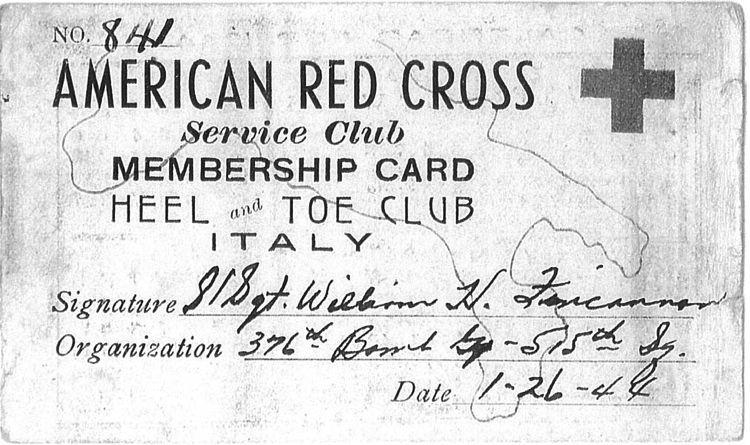 NO. 841
AMERICAN RED CROSS
Service Club
MEMBERSHIP CARD
HEEL and TOE CLUB
ITALY
Signature S/Sgt. William H. Fincannon
Organization 376th Bomb Gp - 515th Sq.
Date 1-26-44